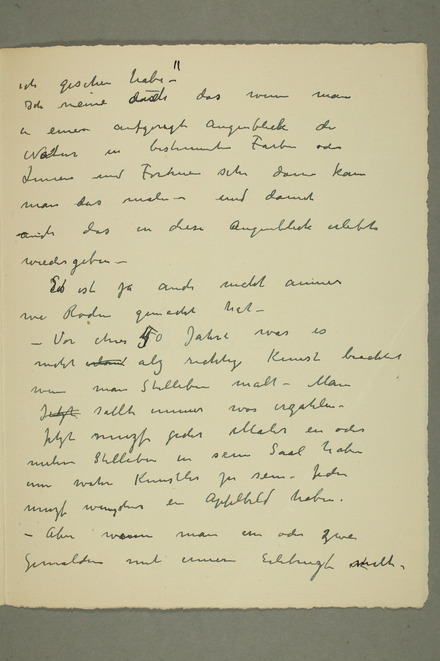 ich gesehen habe –"
Ich meine das wenn man
in einem aufgeregte Augenblick der
Natur in bestimmten Farben oder
Linien und Formen sehr dann kan
man das malen und damit
auch das in diese Augenblick erlebte
wiedergeben –
Es ist ja auch nicht anders
wie Rodin gemacht hat –
– Vor etwa 50 Jahre war es
nicht als richtige Kunst brachtet
wenn man Stilleben malt – Man
sollte immer was erzählen –
Jetzt muss jeder Maler ein oder
Stilleben in seine Saal haben
um Künstler zu sein – Jeder
muss wenigstens ein Apfelbild haben.
– Aber wenn man ein oder zwei
Gemälden mit einem